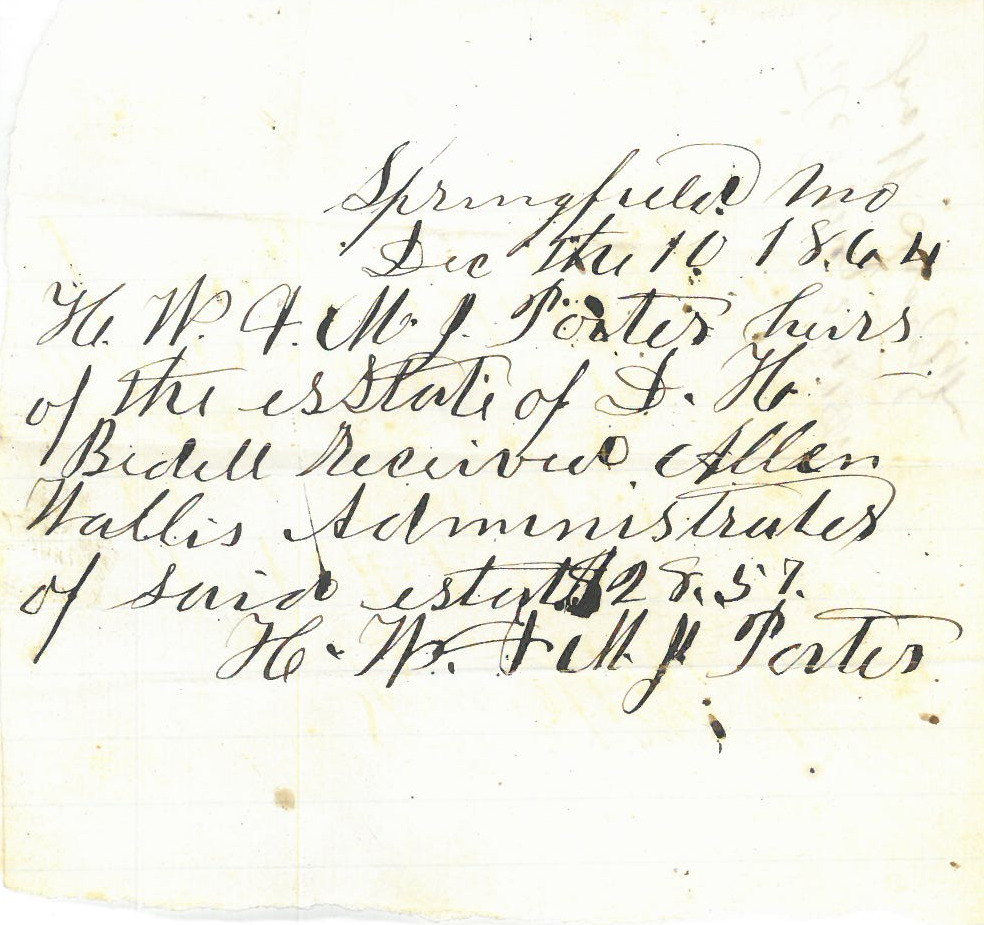 Springfield Mo
Dec the 10 1864
H. W. & M. J. Porter heirs
of the esState of D. H.
Bedell Received Allen
Wallis Administrater
of said estate $28.57.
H. W. & M J Porter